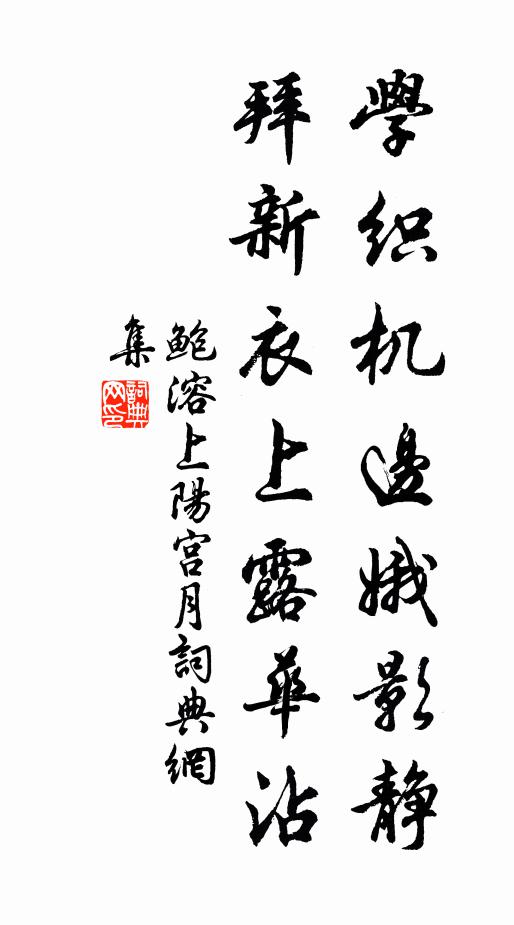 學织机邊娥影静
拜新衣上露華沾
鲍溶上陽宫月詞典網
集
詞典网印